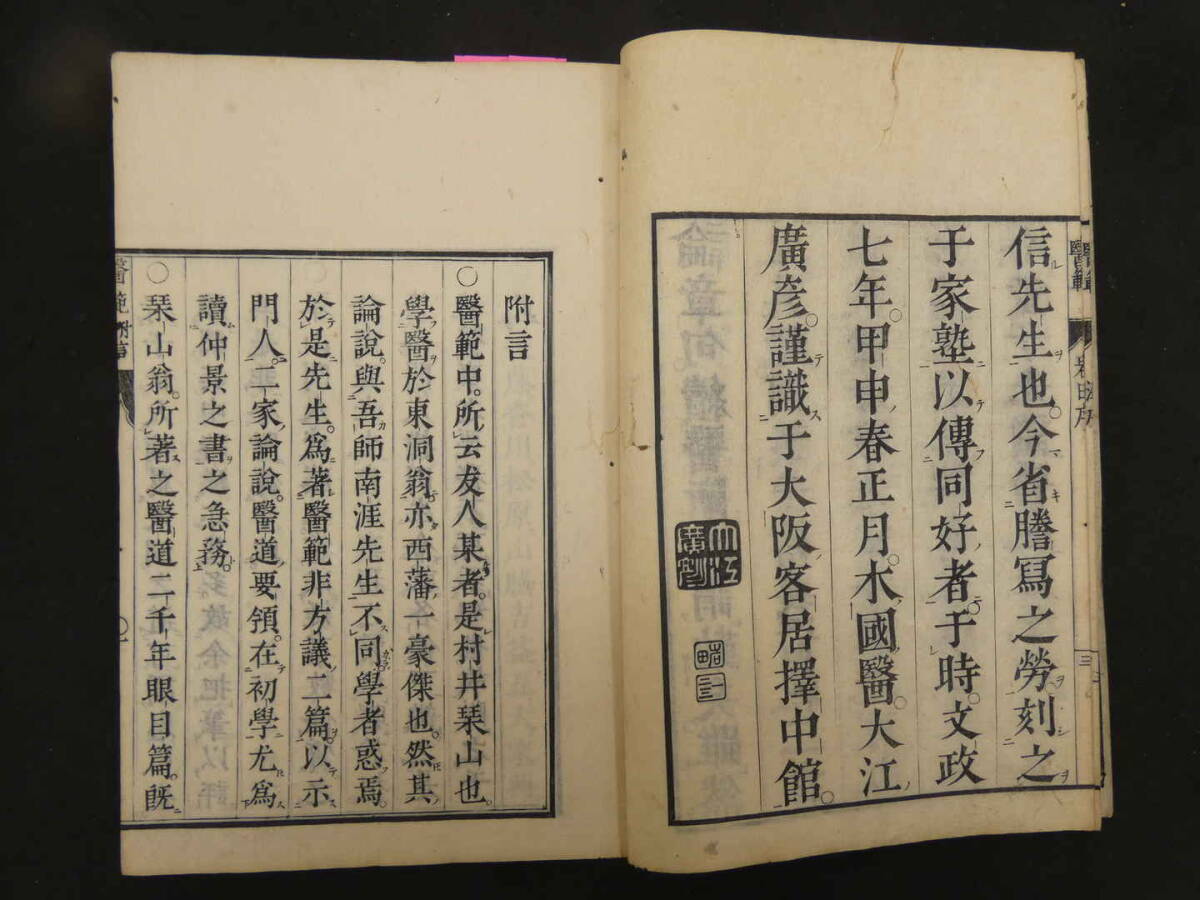 信先生也。今省謄寫之勞刻之
于家塾以傳同好者。于時文政
七年。甲申春正月。水國醫。大江
廣彦謹識于大阪客居擇中館。
大江
廣彦
附言
○醫範中。所云友人某者。是村井琹山也。
學醫於東洞翁。亦西藩一豪傑也。然其
論說。與吾師南涯先生不同。學者惑焉。
於是先生。爲著醫範非方議二篇。以示
門人。二家論說。醫道要領。在初學尤爲
讀仲景之書之急務。
○琹山翁。所著之醫道二千年眼目篇。既